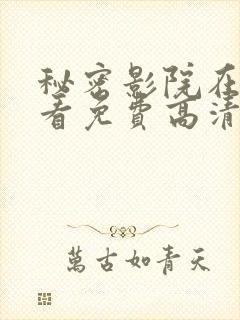 秘密影院在
看免费高清
萬古如青天